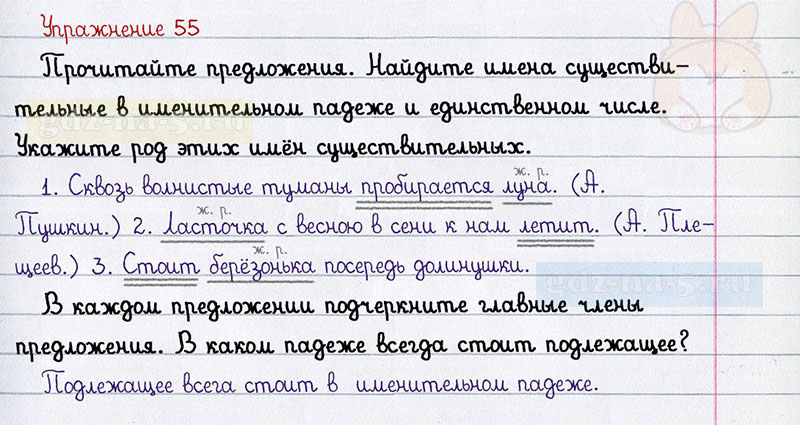 Упражнение 55
Прочитайте предложения. Найдите имена существи-
тельные в именительном падеже и единственном числе.
Укажите род этих имён существительных.
ж. р.
1. Сквозь волнистые туманы пробирается луна. (А.
ж. р.
Пушкин.) 2. Ласточка с весною в сени к нам летит. (А. Пле-
ж. р.
щеев.) 3. Стоит берёзонька посередь долинушки.
gdz-na-5.ru
gdz-na-5.ru
В каждом предложении подчеркните главные члены
предложения. В каком падеже всегда стоит подлежащее?
Подлежащее всега стоит в именительном падеже.